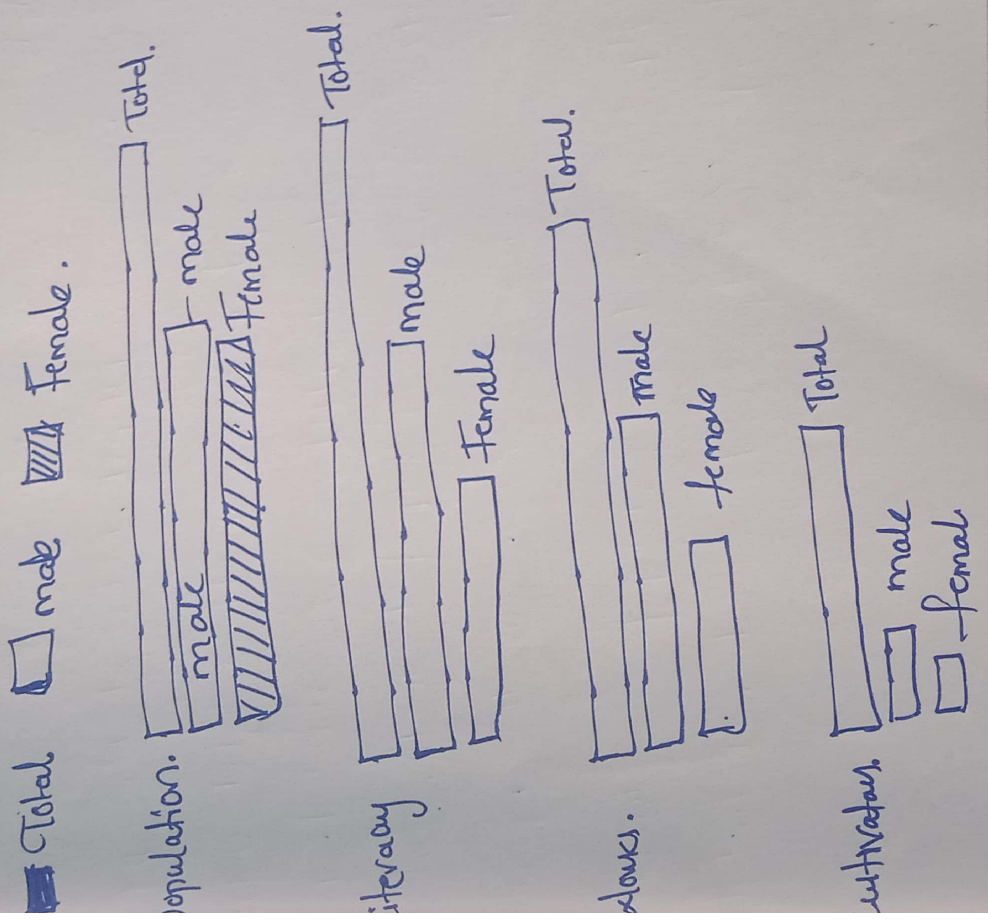 Total male Female.
opulation. male Total.
male
Female
iteracy Total.
male
Female
Total.
male
female
ultivators. Total
male
femal